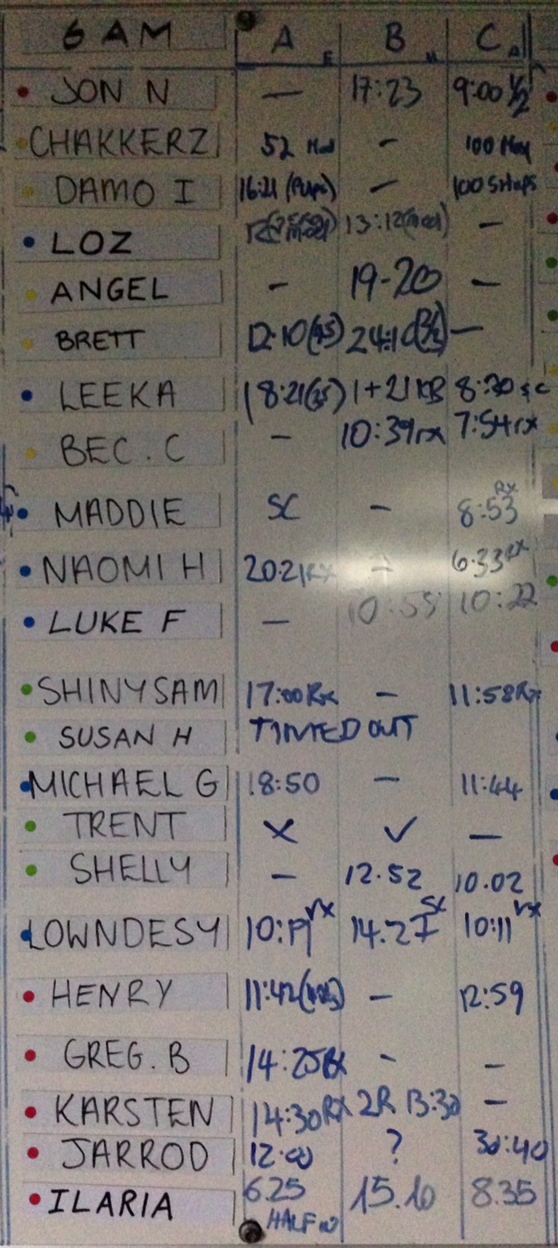 6AM A B C
JON N — 17:23 9:00 1/2
CHAKKERZ 52 -
DAMO I 16:21 (Pups) - 100 Situps
LOZ 13:12 -
ANGEL - 19-20 -
BRETT 12:10(45) 24:10 —
LEEKA 18:21(35) 1+21 KB 8:30 sc
BEC.C - 10:39rx 7:54rx
MADDIE SC - 8:53 Rx
NAOMI H 20:21Rx - 6:33 RX
LUKE F — 10:55 10:22
SHINYSAM 17:00Rx - 11:58Rx
SUSAN H TIMED OUT
MICHAEL G 18:50 - 11:44
TRENT X ✓ —
SHELLY - 12.52 10.02
LOWNDESY 10:19 rx 14.27 SC 10:11 rx
HENRY 11:42 - 12:59
GREG.B 14:25RX - -
KARSTEN 14:30RX 2R 13:30 -
JARROD 12:00 ? 30:40
ILARIA 6.25 15.10 8.35
HALF